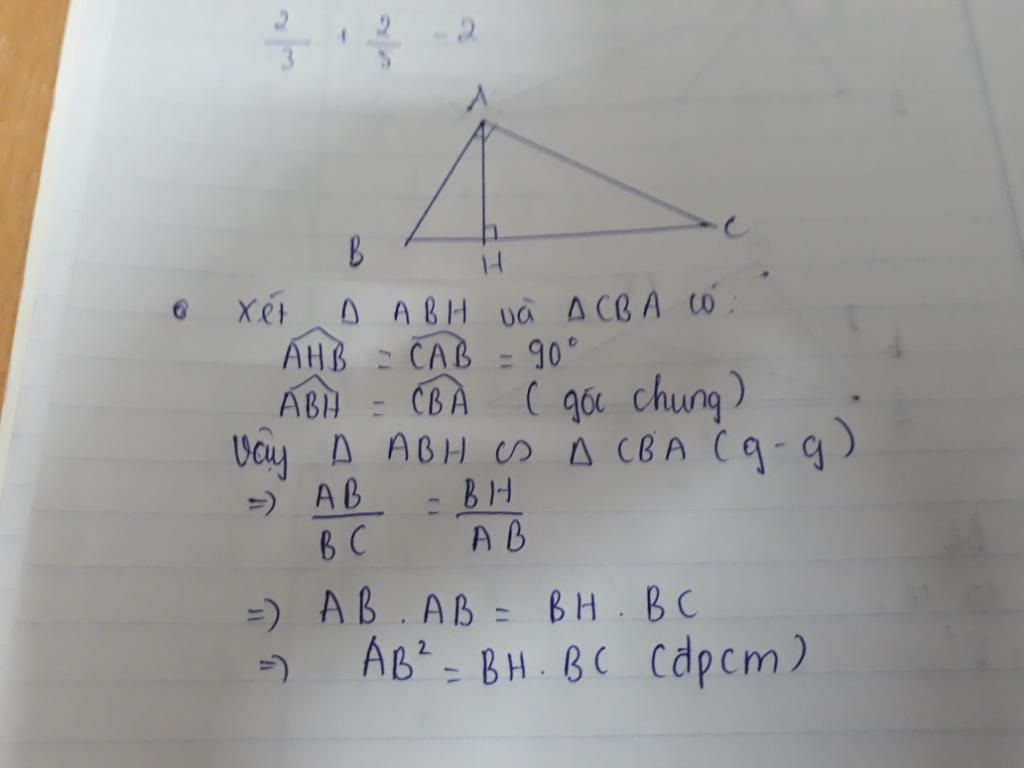 2/3 + 2/3 - 2
A
B
H
C
Xét Δ ABH và ΔCBA có:
AHB = CAB = 90°
ABH = CBA ( góc chung )
Vậy Δ ABH ∽ Δ CBA ( g - g )
=> AB/BC = BH/AB
=> AB . AB = BH . BC
=> AB² = BH . BC (dpcm)